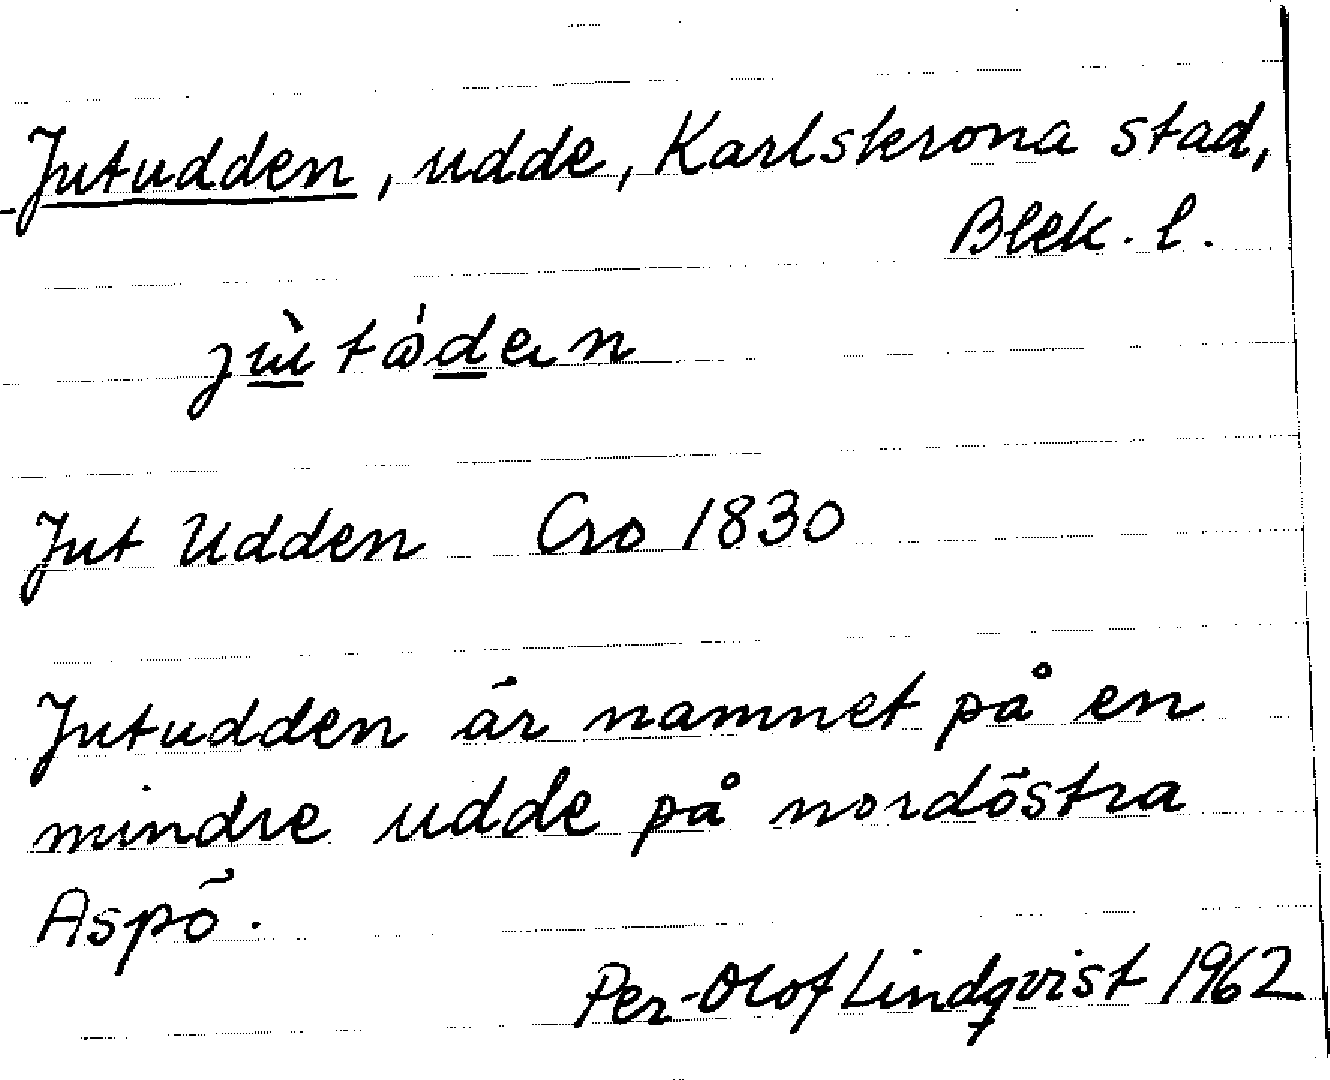 Jutudden, udde, Karlskrona stad,
Blek. l.
Jut Udden Cro 1830
Jutudden är namnet på en
mindre udde på nordöstra
Aspö.
Per-Olof Lindqvist 1962